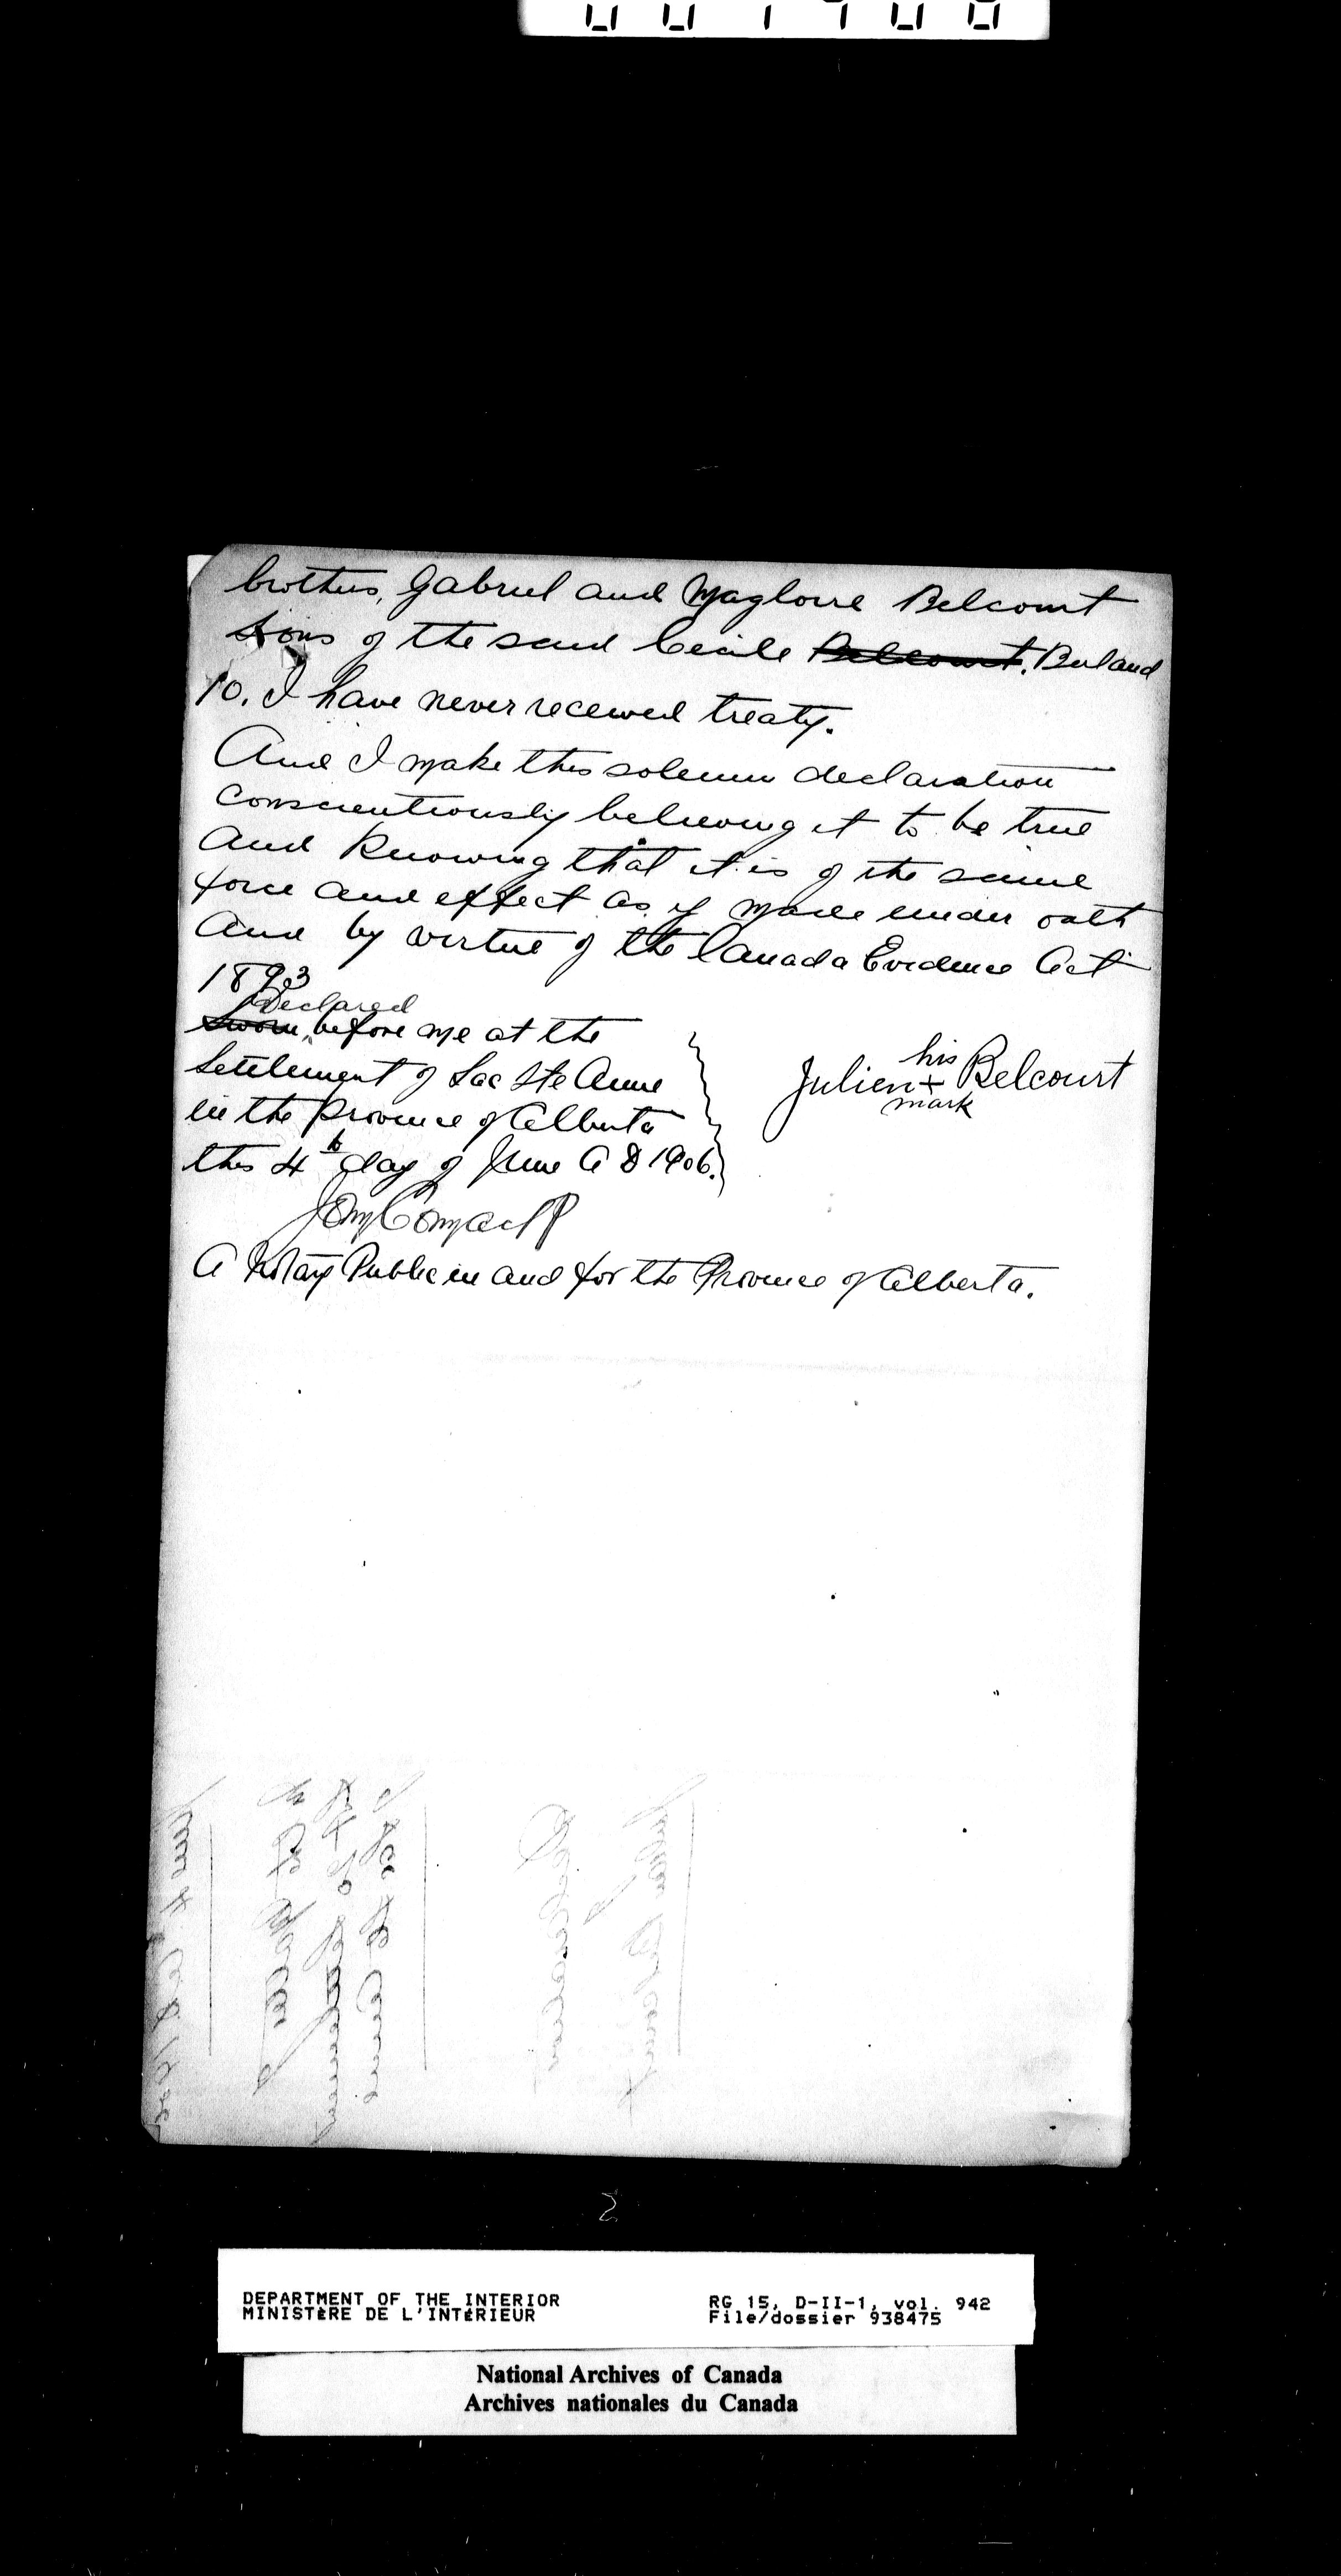 brothers, Gabriel and Magloire Belcourt
sons of the said Cecile Belcourt. Beland
10. I have never received treaty.
And I make this solemn declaration
conscientiously believing it to be true
and knowing that it is of the same
force and effect as if made under oath
and by virtue of the Canada Evidence Act
1893
Declared
Sworn before me at the
Settlement of Lac Ste Anne
in the Province of Alberta
this 4th day of June A D 1906.
his
Julien + Belcourt
mark
A Notary Public in and for the Province of Alberta.
2
DEPARTMENT OF THE INTERIOR
MINISTÈRE DE L'INTÉRIEUR
RG 15, D-II-1, vol. 942
File/dossier 938475
National Archives of Canada
Archives nationales du Canada